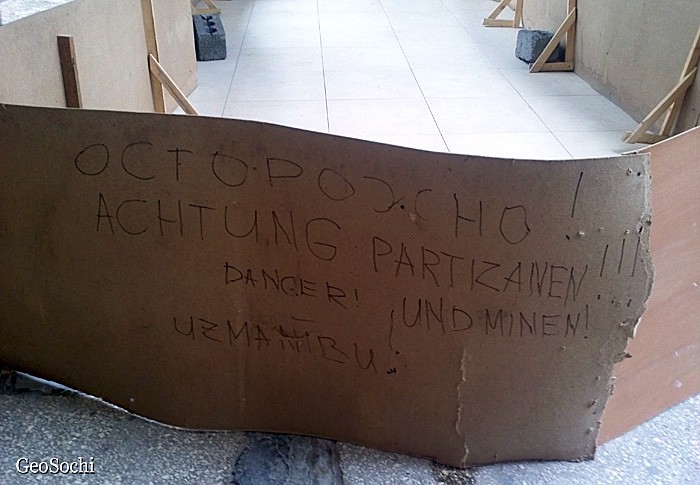 ОСТОРОЖНО!
ACHTUNG PARTIZANEN!!!
DANGER! UND MINEN!
UZMANĪBU!
GeoSochi